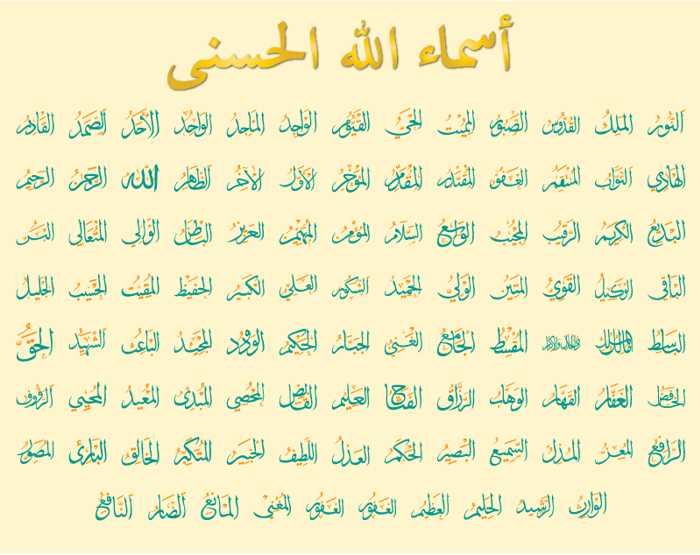 أسماء الله الحسنى
النور الملك القدوس الصبور المميت الحي القيوم الواجد الماجد الواحد الأحد الصمد القادر
الهادي التواب المنتقم العفو المقتدر المقدم المؤخر الأول الآخر الظاهر الله الرحمن الرحيم
البديع الكريم الرقيب المجيب الواسع السلام المؤمن المهيمن العزيز الباطن الوالي المتعالي البر
الباقي الوكيل القوي المتين الولي الحميد الشكور العلي الكبير الحفيظ المقيت الحسيب الجليل
الباسط مالك الملك ذو الجلال والإكرام المقسط الجامع الغني الجبار الحكيم الودود المجيد الباعث الشهيد الحق
الخافض الغفار القهار الوهاب الرزاق الفتاح العليم القابض المحصي المبدئ المعيد المحيي الرؤوف
الرافع المعز المذل السميع البصير الحكم العدل اللطيف الخبير المتكبر الخالق البارئ المصور
الوارث الرشيد الحليم العظيم الغفور الغفور المغني المانع الضار النافع